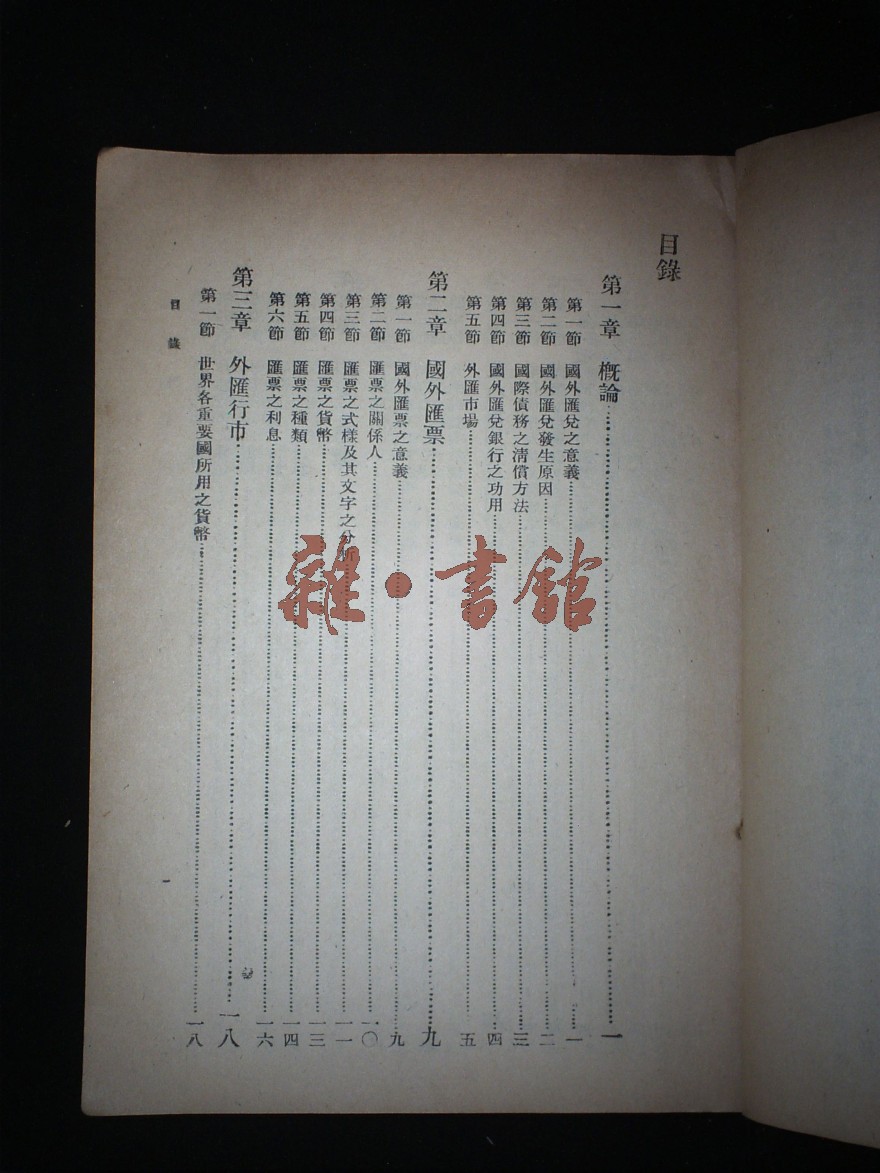 目錄
第一章 概論……一
第一節 國外匯兌之意義……一
第二節 國外匯兌發生原因……二
第三節 國際債務之清償方法……三
第四節 國外匯兌銀行之功用……四
第五節 外匯市場……五
第二章 國外匯票……九
第一節 國外匯票之意義……九
第二節 匯票之關係人……一〇
第三節 匯票之式樣及其文字之分析……一一
第四節 匯票之貨幣……一三
第五節 匯票之種類……一四
第六節 匯票之利息……一六
第三章 外匯行市……一八
第一節 世界各重要國所用之貨幣……一八
目錄
一
雜·書館